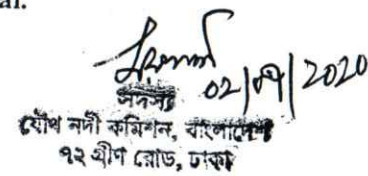 al.
02/09/2020
সদস্য
যৌথ নদী কমিশন, বাংলাদেশ
৭২ গ্রীণ রোড, ঢাকা